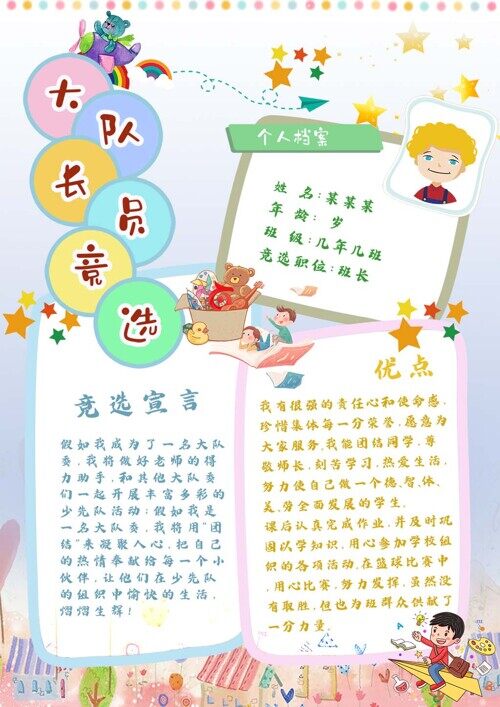 大
队
长
员
竞
选
个人档案
姓 名:某某某
年 龄: 岁
班 级:几年几班
竞选职位:班长
竞选宣言
假如我成为了一名大队
委,我将做好老师的得
力助手,和其他大队委
们一起开展丰富多彩的
少先队活动;假如我是
一名大队委,我将用“团
结”来凝聚人心,把自己
的热情奉献给每一个小
伙伴,让他们在少先队
的组织中愉快的生活,
熠熠生辉!
优点
我有很强的责任心和使命感,
珍惜集体每一分荣誉,愿意为
大家服务。我能团结同学,尊
敬师长,刻苦学习,热爱生活,
努力使自己做一个德、智、体、
美、劳全面发展的学生。
课后认真完成作业,并及时巩
固以学知识,用心参加学校组
织的各项活动,在篮球比赛中
,用心比赛,努力发挥,虽然没
有取胜,但也为班群众供献了
一分力量。